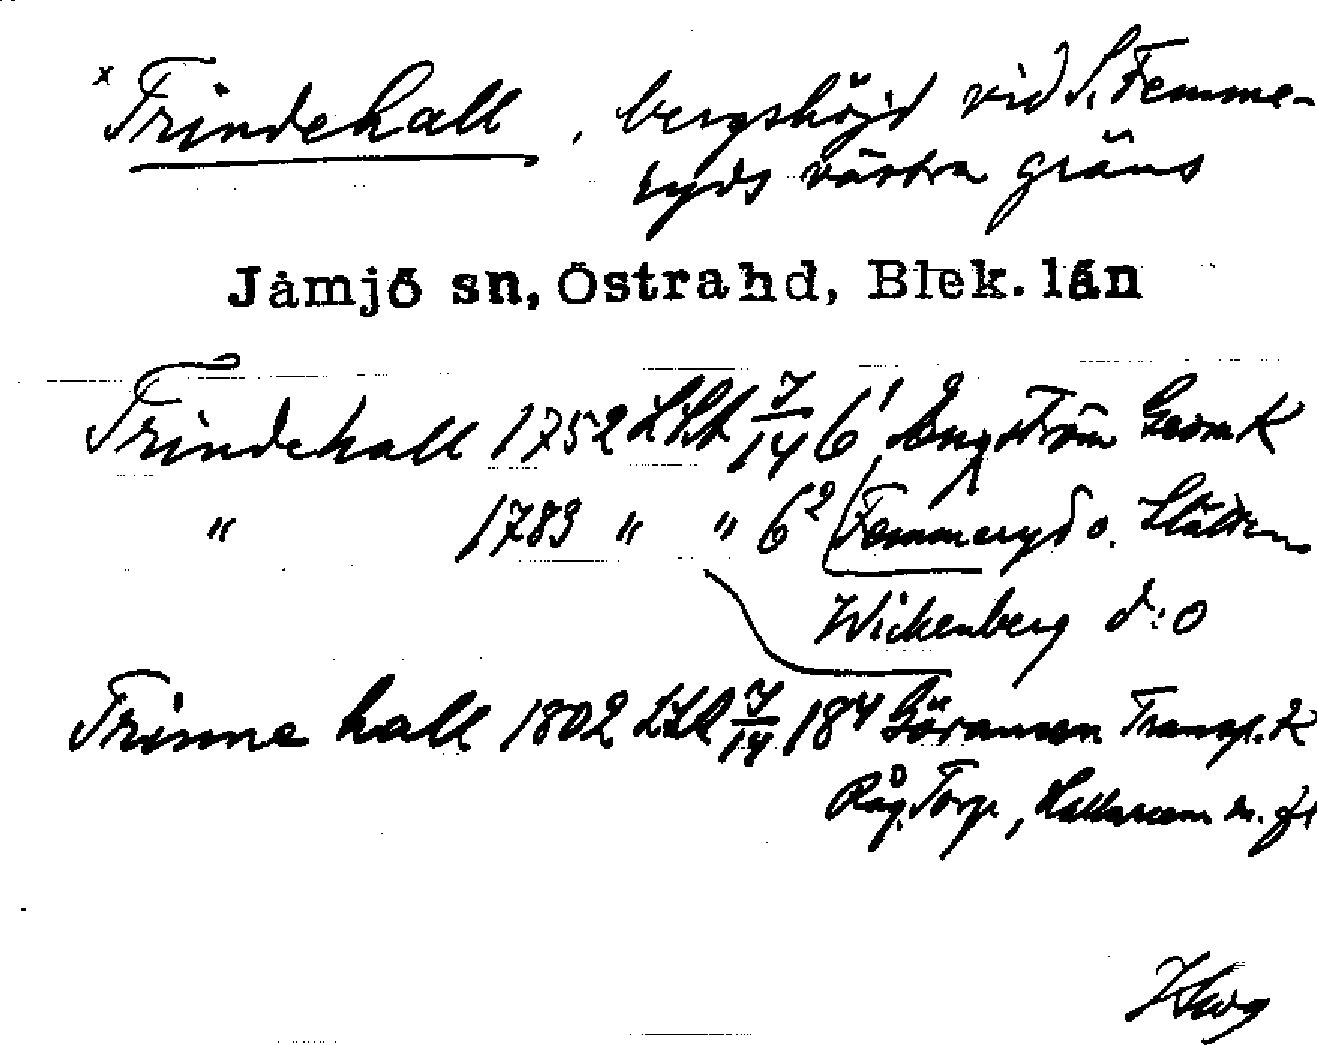 x Trindehall, bergshöjd vid S. Femme-
ryds västra gräns
Jämjö sn, Östra hd, Blek. län
Trindehall 1752 LSA J/14 6¹ Engström Geom K
" 1783 " " 6² Femmeryd o.
Wickenberg d:o
Trinne hall 1802 LSA J/14 18⁴ Göransson Transp. K
Råg. Torp, m. fl